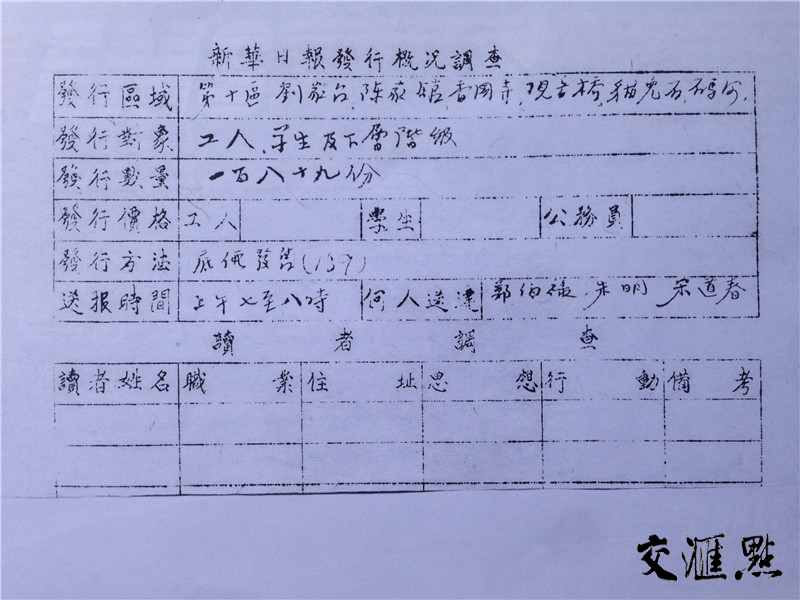 新華日報發行概況調查
發行區域 第十區 劉家台 陳家館 香國寺 观音橋 貓兒石
發行對象 工人、学生及下層階級
發行數量 一百八十九份
發行價格 工人 學生 公務員
發行方法 底價發售(139)
送报時間 上午七至八時 何人送達 郭伯禄 朱明 宋道春
讀者調查
讀者姓名 職業 住址 思想 行動 備考
交滙點